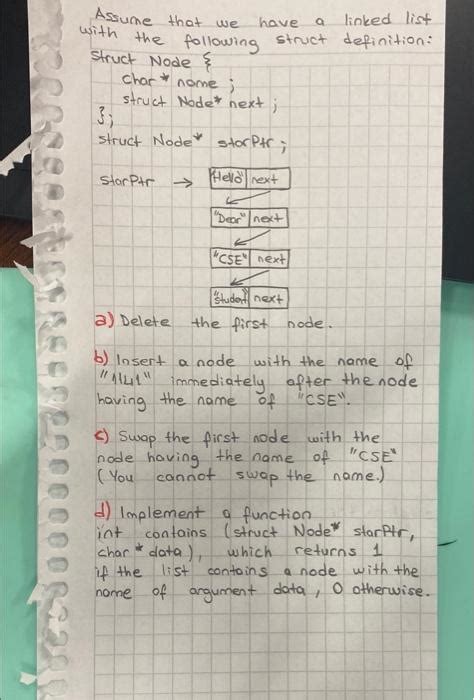 Assume that we have a linked list
with the following struct definition:
struct Node {
char* name;
struct Node* next;
};
struct Node* starPtr;
starPtr → "Hello" next
"Dear" next
"CSE" next
"Student" next
a) Delete the first node.
b) Insert a node with the name of
"1141" immediately after the node
having the name of "CSE".
c) Swap the first node with the
node having the name of "CSE"
(You cannot swap the name.)
d) Implement a function
int contains (struct Node* starPtr,
char* data), which returns 1
if the list contains a node with the
name of argument data, 0 otherwise.